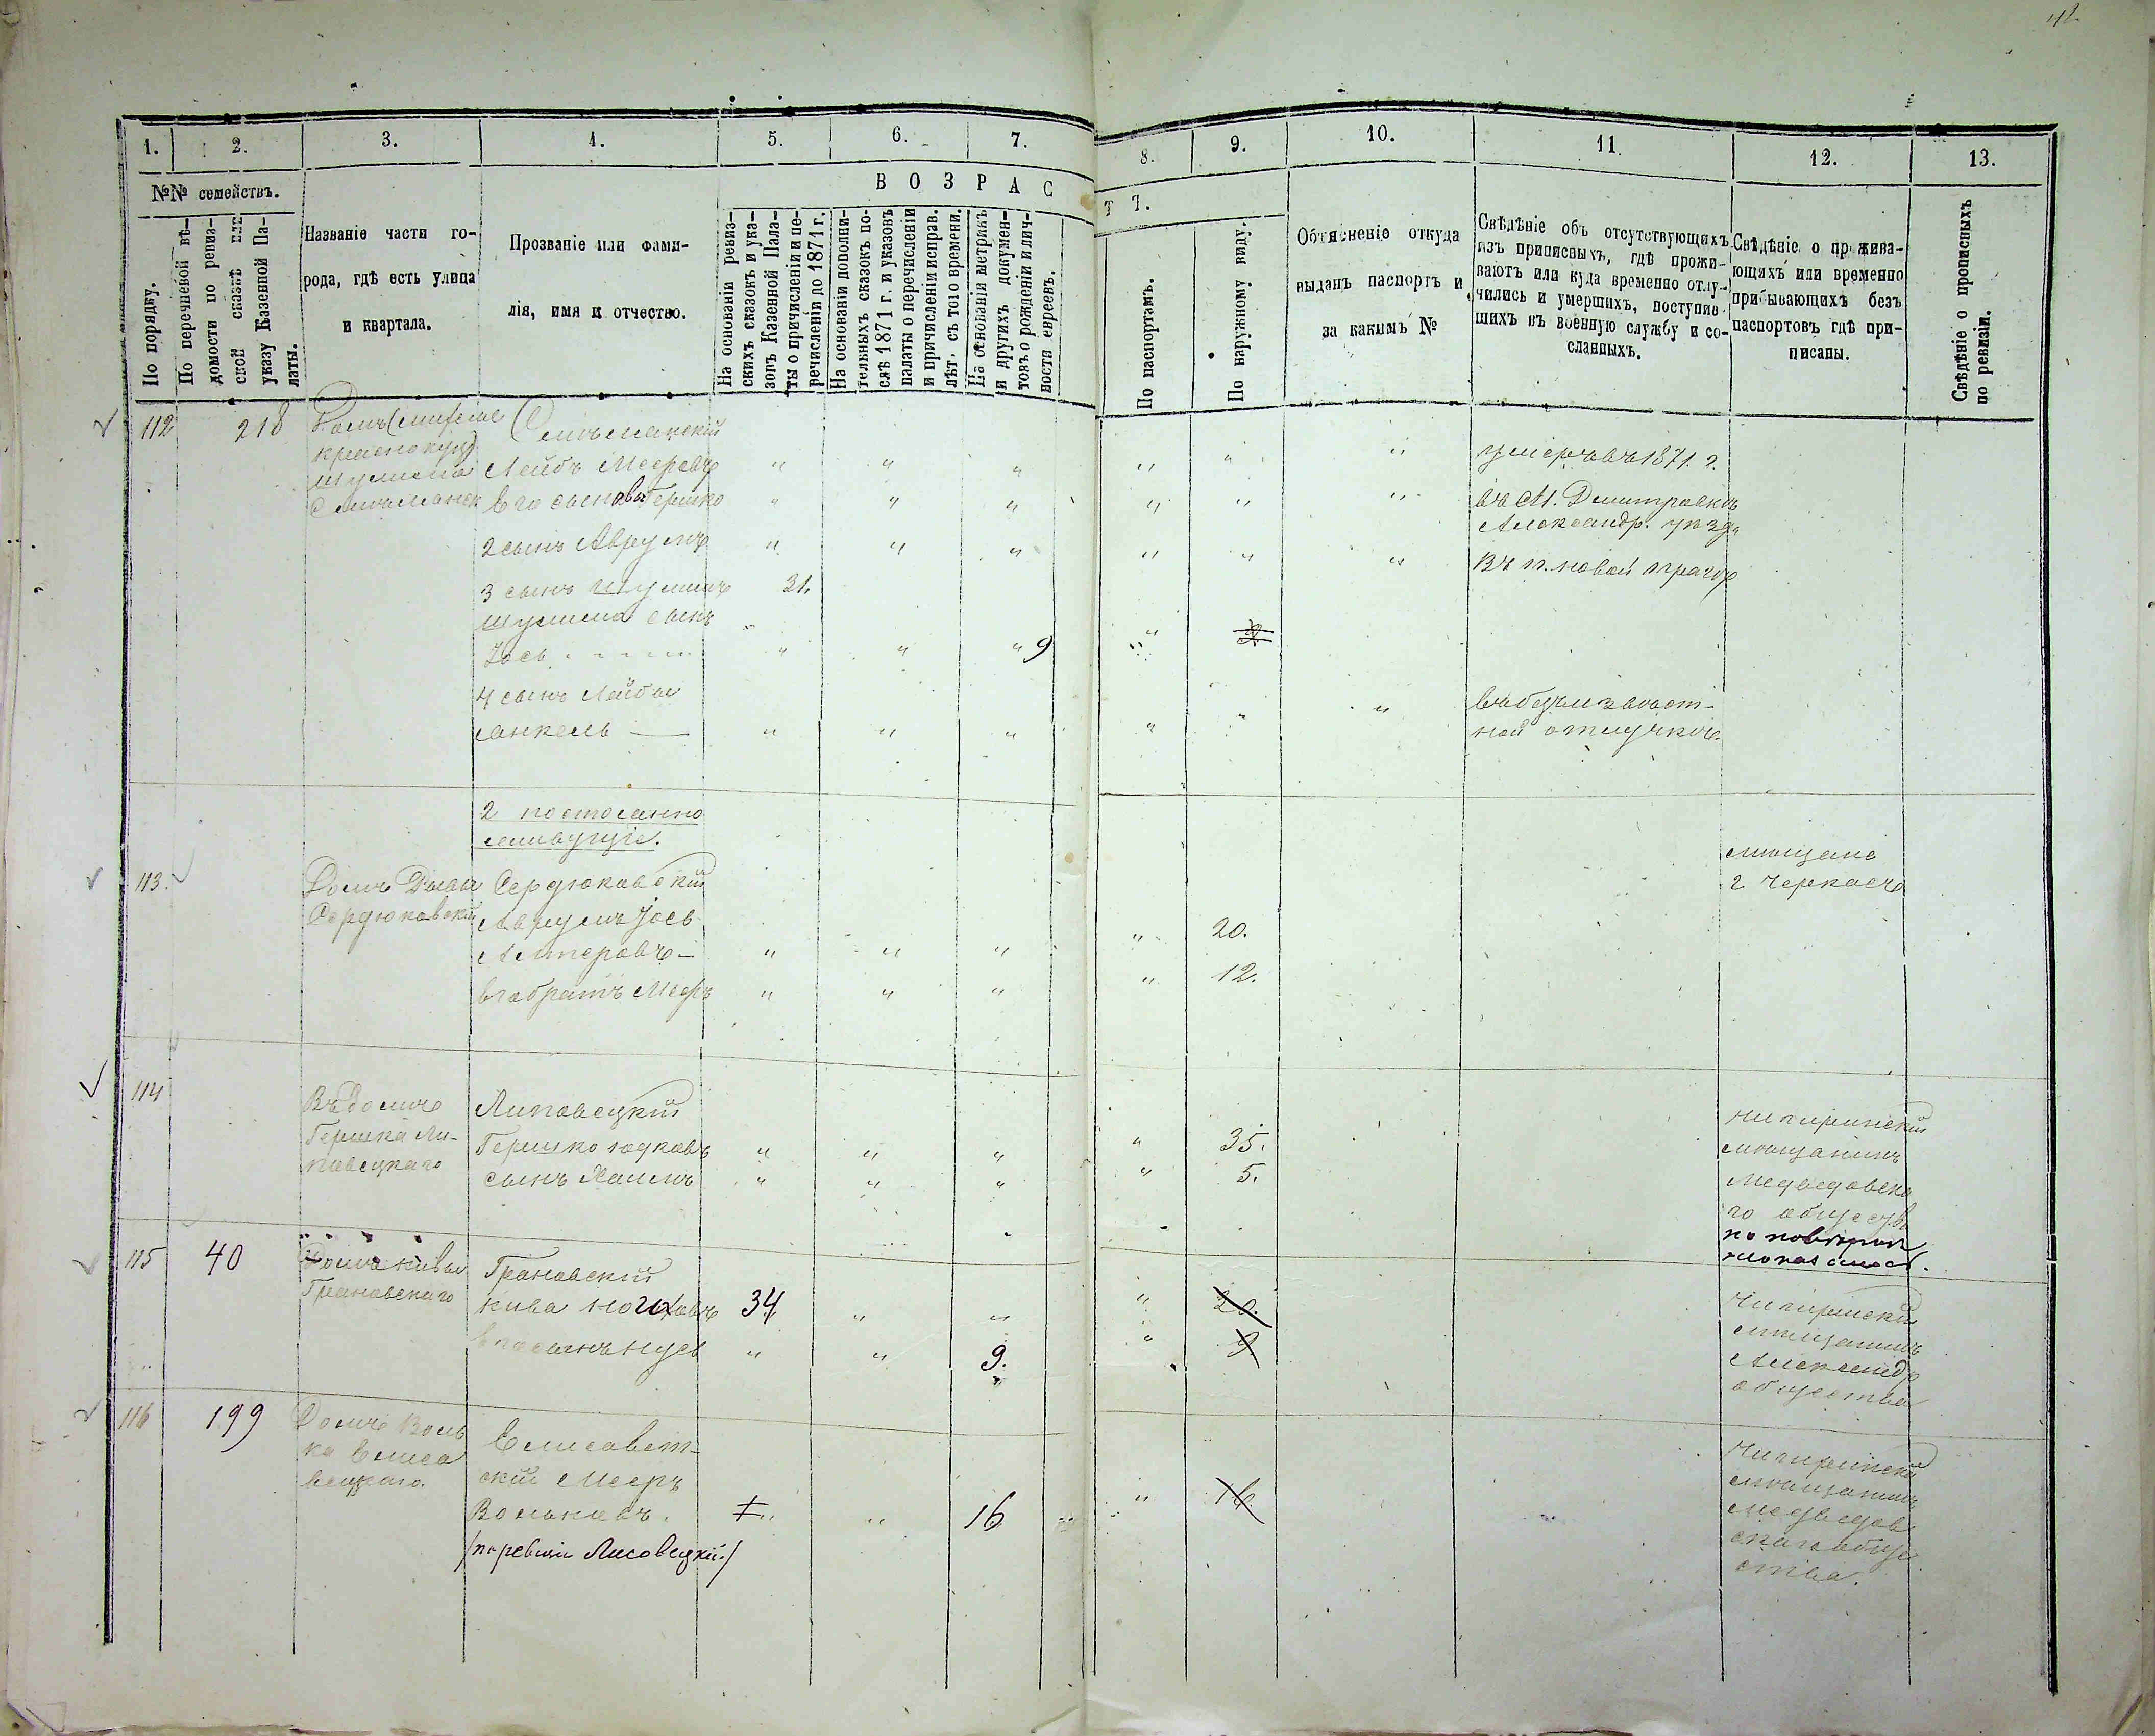 42
1. 2. 3. 4. 5. 6. 7. 8. 9. 10. 11. 12. 13.
№№ семействъ.
По порядку.
По перечневой вѣ-
домости по ревиз-
ской сказкѣ или
указу Казенной Па-
латы.
Названіе части го-
рода, гдѣ есть улица
и квартала.
Прозваніе или фами-
лія, имя и отчество.
ВОЗРАСТЪ.
На основаніи ревиз-
скихъ сказокъ и ука-
зовъ Казенной Пала-
ты о причисленіи и пе-
речисленіи до 1871 г.
На основаніи дополни-
тельныхъ сказокъ по-
слѣ 1871 г. и указовъ
палаты о перечисленіи
и причисленіи исправ.
лѣт. съ того времени.
На основаніи метрикъ
и другихъ докумен-
товъ о рожденіи и лич-
ности евреевъ.
По паспортамъ.
По наружному виду.
Объясненіе откуда
выданъ паспортъ и
за какимъ №
Свѣдѣніе объ отсутствующихъ
изъ приписныхъ, гдѣ прожи-
ваютъ или куда временно отлу-
чились и умершихъ, поступив-
шихъ въ военную службу и со-
сланныхъ.
Свѣдѣніе о прожива-
ющихъ или временно
прибывающихъ безъ
паспортовъ гдѣ при-
писаны.
Свѣдѣніе о прописныхъ
по ревизіи.
112 218 Домъ
Шулима Лейбъ Мееровъ " " " " " " умеръ въ 1871 г.
Его сыновья Гершко " " " " " " въ М. Дмитровкѣ
Александр. уѣзда
2 сынъ Аврумъ " " " " " " Въ п. новой прагѣ
3 сынъ Шулимъ 31.
Шулима сынъ
Іось " " " 9 "
4 сынъ Лейбы
Янкель — " " " " " " въ безъизвѣст-
ной отлучкѣ.
2 постоянно
живущіе.
113. Домъ Сердюковскій
Сердюковскій Аврумъ Іось
Алтеровъ — " " " " 20.
его братъ Мееръ " " " " 12.
мѣщане
г Черкасъ
114 Въ домѣ Липовецкій
Гершка Ли- Гершко Юдковъ " " " " 35.
повецкаго сынъ Хаимъ " " " " 5.
Чигиринскій
мѣщанинъ
Медведовска
го обществ
115 40 Домъ Кивы Грановскій
Грановскаго Кива 34 " " " 20.
его сынъ Нусь " " 9. " 9.
Чигиринскій
мѣщанинъ
Александр
общества
116 199 Домъ Воль Елисавет-
ка Елиса скій Мееръ
вецкаго. Вольковъ. " " 16 " 16.
/по ревизіи Лисовецкій./
Чигиринскій
мѣщанинъ
Медведов
скаго обще
ства.